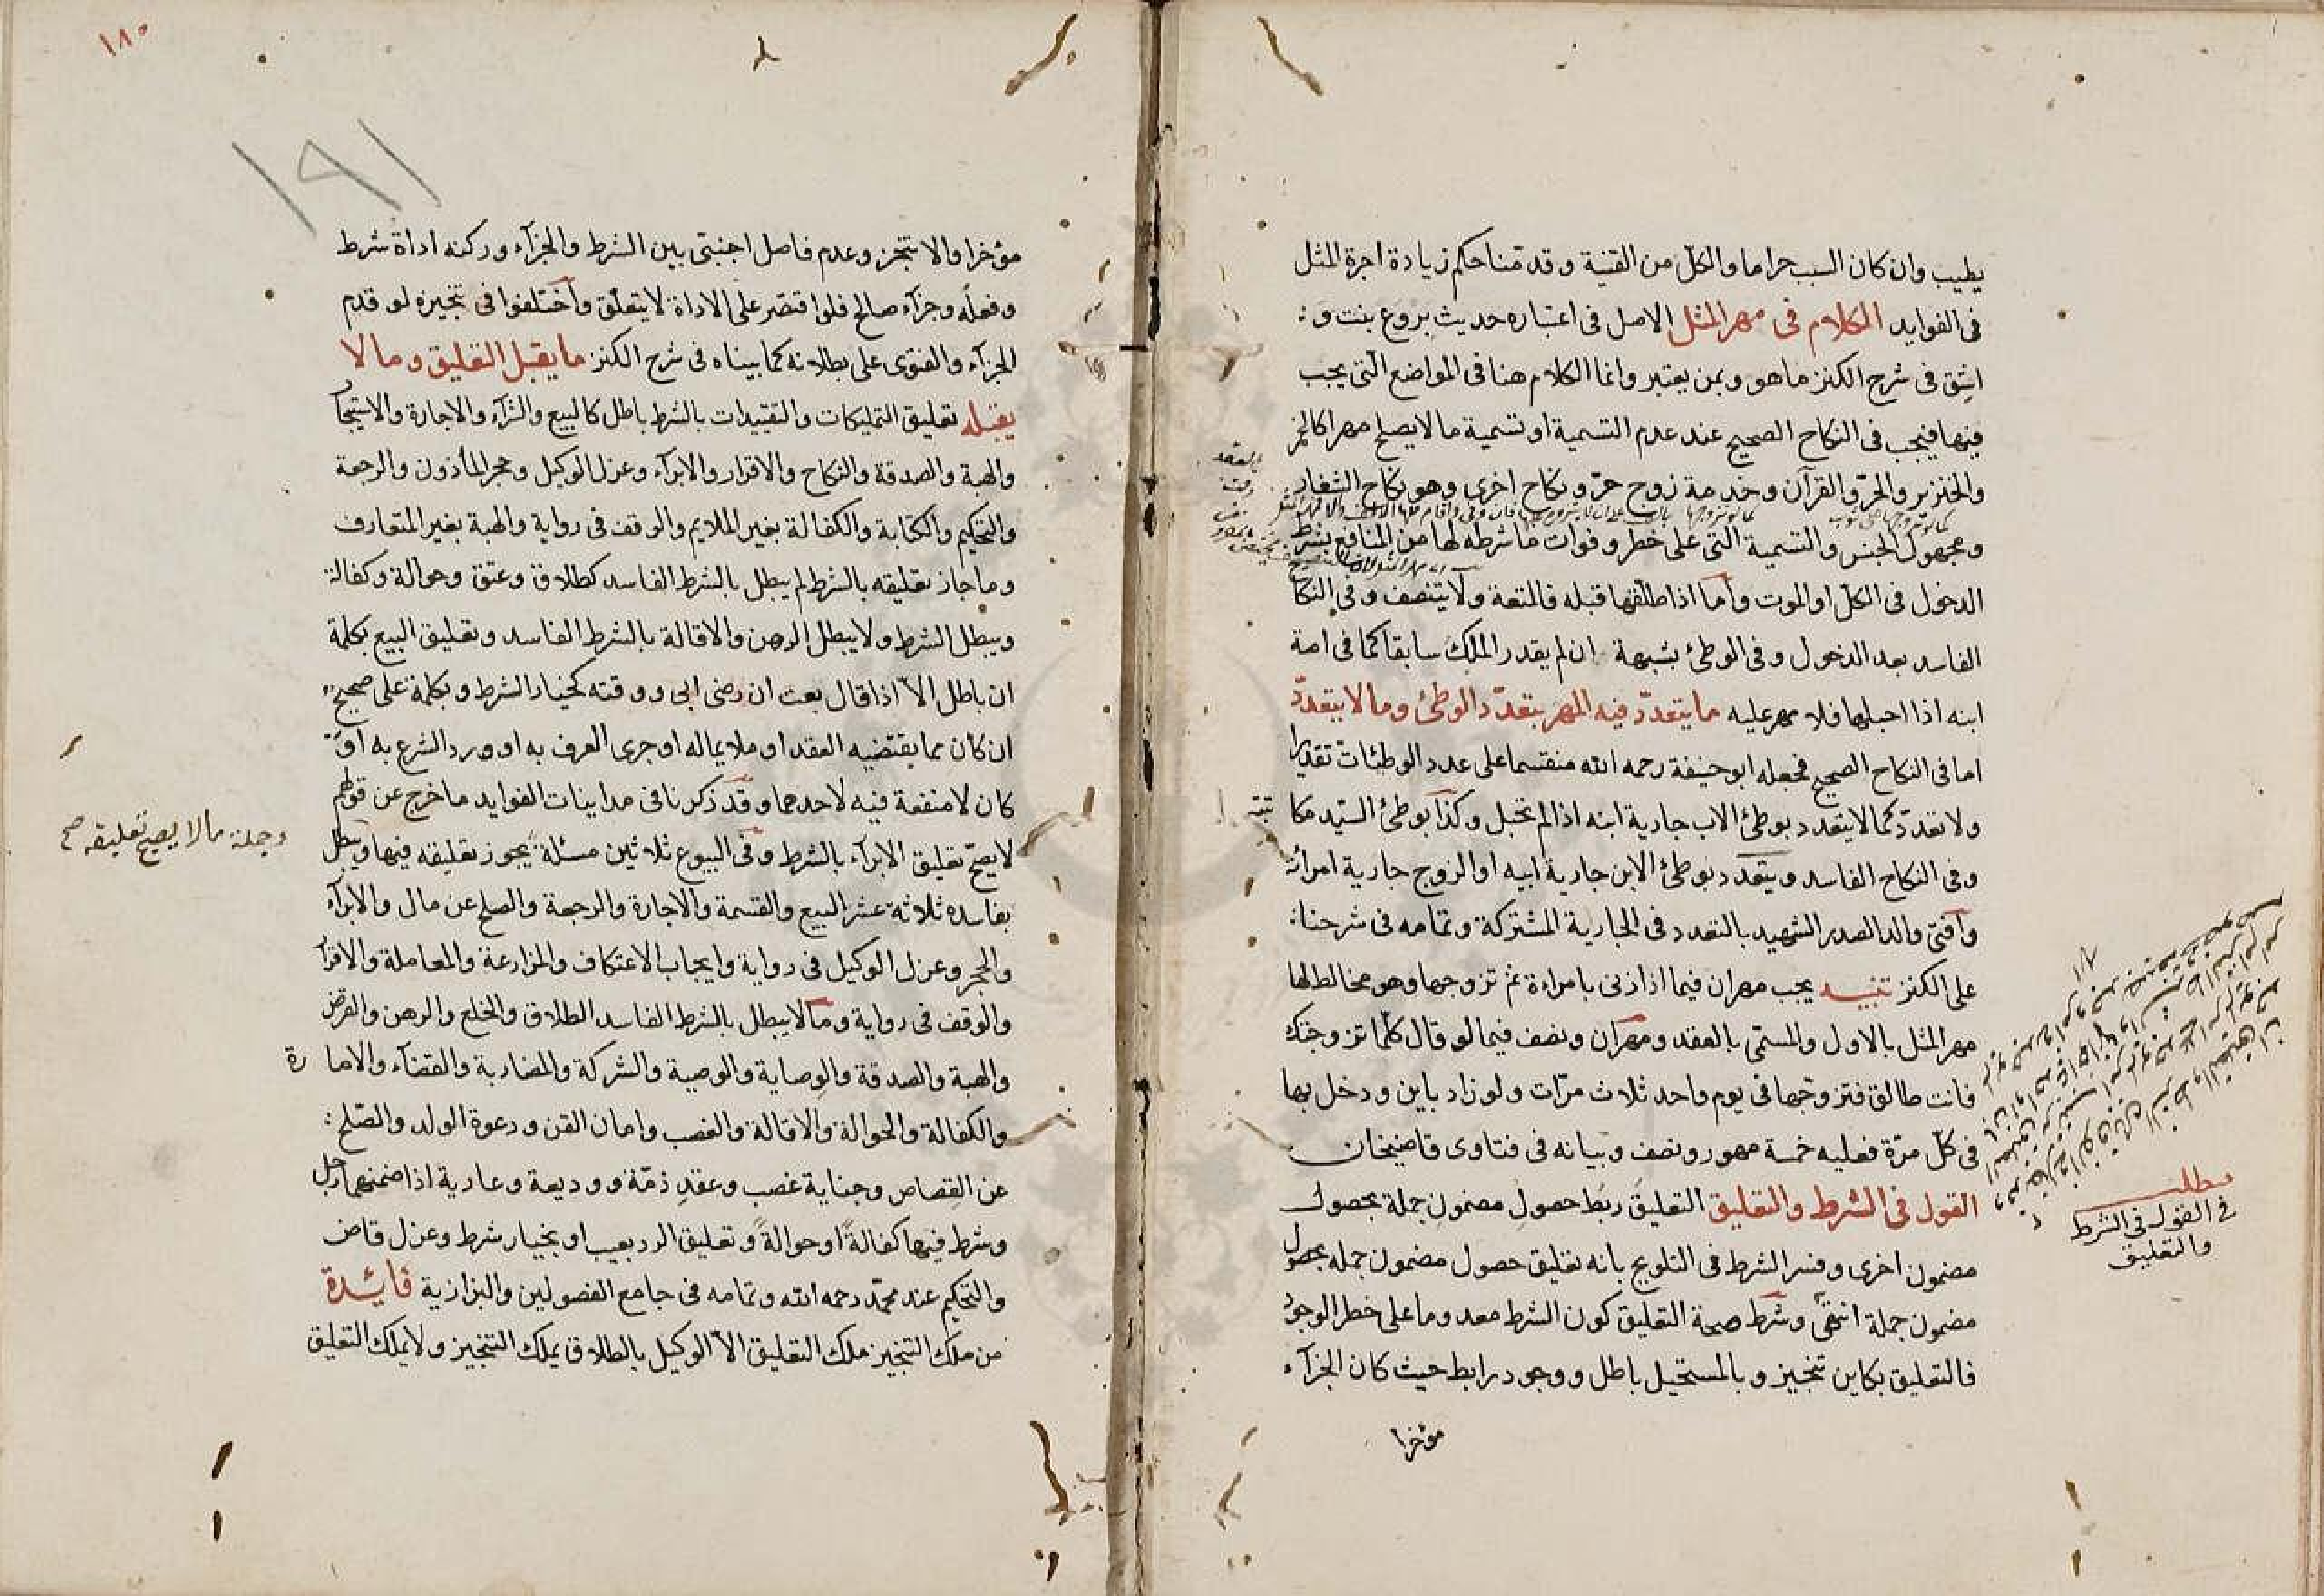 يطيب وان كان السبب حراما والكل من القنية وقدمنا حكم زيادة اجرة المثل
فى الفوايد الكلام فى مهر المثل الاصل فى اعتباره حديث بروع بنت و
اشق فى شرح الكنز ما هو وبمن يعتبر وانما الكلام هنا فى المواضع التى يجب
فيها فيجب فى النكاح الصحيح عند عدم التسمية او تسمية ما لا يصلح مهرا كالخمر
والخنزير والحرّ والقرآن وخدمة زوج حرّ ونكاح اخرى وهو نكاح الشغار
ومجهول الجنس والتسمية التى على خطر وفوات ما شرطه لها من المنافع بشرط
الدخول فى الكل او الموت وأما اذا طلقها قبله فالمتعة ولا يتنصف وفى النكا
الفاسد بعد الدخول وفى الوطئ بشبهة ان لم يقدر الملك سابقا كما فى امة
ابنه اذا احبلها فلا مهر عليه ما يتعدّد فيه المهر بتعدّد الوطئ وما لا يتعدّد
اما فى النكاح الصحيح فجعله ابو حنيفة رحمه الله منقسما على عدد الوطئات تقديرا
ولا تعدّد كما لا يتعدد بوطئ الاب جارية ابنه اذا لم تحبل وكذا بوطئ السيّد مكا تبته
وفى النكاح الفاسد ويتعدد بوطئ الابن جارية ابيه او الزوج جارية امرأته
وأفتى والد الصدر الشهيد بالتعدد فى الجارية المشتركة وتمامه فى شرحنا
على الكنز تنبيه يجب مهران فيما اذا زنى بامراءة ثم تزوجها وهو مخالط لها
مهر المثل بالاول والمسمّى بالعقد ومهران ونصف فيما لو قال كلما تزوجتك
فانت طالق فتزوّجها فى يوم واحد ثلاث مرّات ولو زاد باين ودخل بها
فى كلّ مرّة فعليه خمسة مهور ونصف وبيانه فى فتاوى قاضيخان
القول فى الشرط والتعليق التعليق ربط حصول مضمون جملة بحصول
مضمون اخرى وفسر الشرط فى التلويح بانه تعليق حصول مضمون جملة بحصول
مضمون جملة انتهى وشرط صحة التعليق كون الشرط معدوما على خطر الوجود
فالتعليق بكاين تنجيز وبالمستحيل باطل ووجود رابط حيث كان الجزآء
مؤخرا
مطلب
فى القول فى الشرط
والتعليق
١٨٥
١٩١
مؤخرا والا تنجز وعدم فاصل اجنبىّ بين الشرط والجزآء وركنه اداة شرط
وفعله وجزآء صالح فلو اقتصر على الاداة لا يتعلّق واختلفوا فى تنجيزه لو قدم
الجزآء والفتوى على بطلانه كما بيناه فى شرح الكنز ما يقبل التعليق وما لا
يقبله تعليق التمليكات والتقييدات بالشرط باطل كالبيع والشرآء والاجارة والاستيجار
والهبة والصدقة والنكاح والاقرار والابرآء وعزل الوكيل وحجر المأذون والرجعة
والتحكيم والكتابة والكفالة بغير الملايم والوقف فى رواية والهبة بغير المتعارف
وما جاز تعليقه بالشرط لم يبطل بالشرط الفاسد كطلاق وعتق وحوالة وكفالة
ويبطل الشرط ولا يبطل الرهن والاقالة بالشرط الفاسد وتعليق البيع بكلمة
ان باطل الاّ اذا قال بعت ان رضى ابى ووقته كخيار الشرط وبكلمة على صحيح
ان كان مما يقتضيه العقد او ملايما له او جرى العرف به او ورد الشرع به او
كان لا منفعة فيه لاحدهما وقد ذكرنا فى مداينات الفوايد ما خرج عن قولهم
لا يصحّ تعليق الابرآء بالشرط وفى البيوع ثلاثين مسئلة يجوز تعليقه فيها ويبطل
بفاسده ثلاثة عشر البيع والقسمة والاجارة والرجعة والصلح عن مال والابرآء
والحجر وعزل الوكيل فى رواية وايجاب الاعتكاف والمزارعة والمعاملة والاقرا
والوقف فى رواية وما لا يبطل بالشرط الفاسد الطلاق والخلع والرهن والقرض
والهبة والصدقة والوصاية والوصية والشركة والمضاربة والقضآء والاما رة
والكفالة والحوالة والاقالة والغصب وامان القن ودعوة الولد والصّلح
عن القصاص وجناية غصب وعقد ذمّة ووديعة وعارية اذا ضمنهما رجل
وشرط فيها كفالةً او حوالةً وتعليق الرد بعيب او بخيار شرط وعزل قاض
والتحكيم عند محمّد رحمه الله وتمامه فى جامع الفصولين والبزازية فايدة
من ملك التنجيز ملك التعليق الاّ الوكيل بالطلاق يملك التنجيز ولا يملك التعليق
وجملة ما لا يصح تعليقه صح